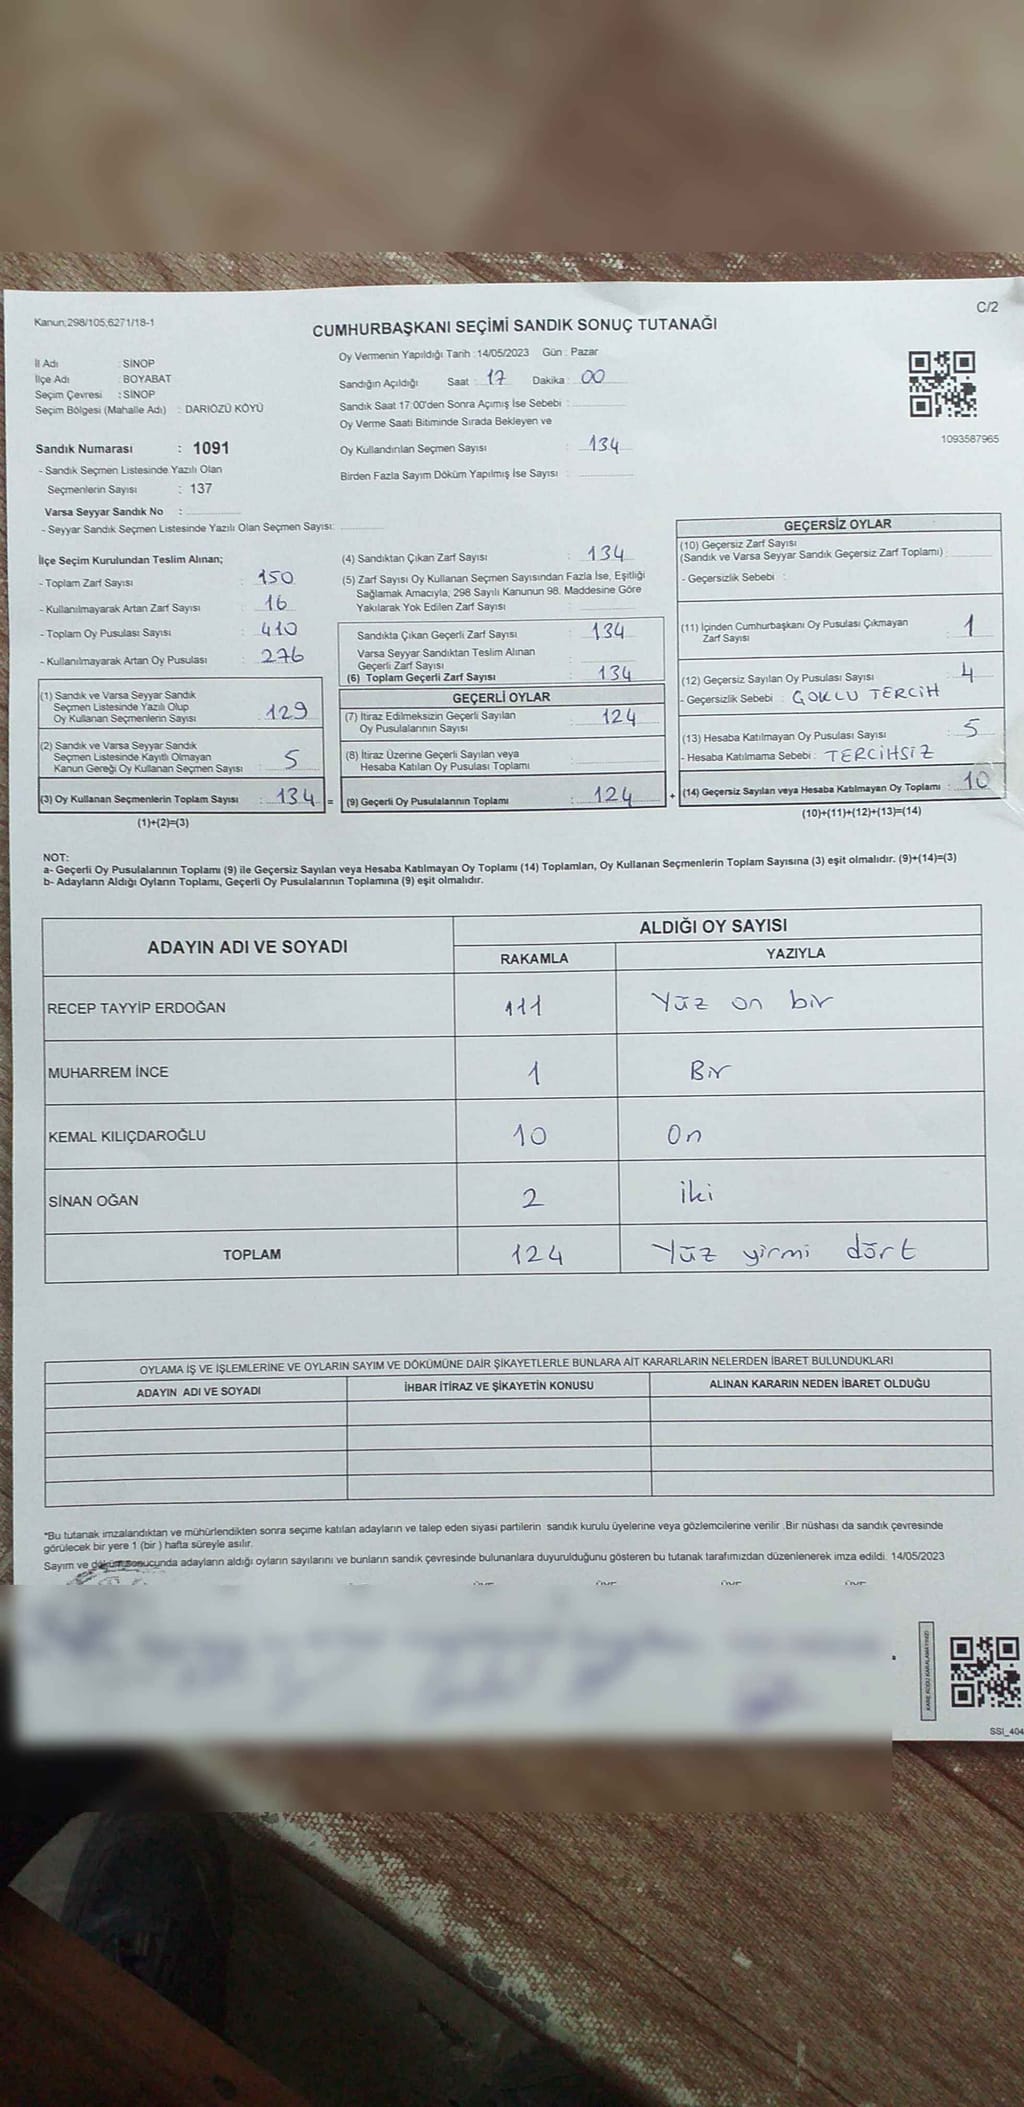 Kanun;298/105;6271/18-1
C/2
CUMHURBAŞKANI SEÇİMİ SANDIK SONUÇ TUTANAĞI
İl Adı : SİNOP
İlçe Adı : BOYABAT
Seçim Çevresi : SİNOP
Seçim Bölgesi (Mahalle Adı) : DARIÖZÜ KÖYÜ
Sandık Numarası : 1091
- Sandık Seçmen Listesinde Yazılı Olan
Seçmenlerin Sayısı : 137
Varsa Seyyar Sandık No :
- Seyyar Sandık Seçmen Listesinde Yazılı Olan Seçmen Sayısı:
Oy Vermenin Yapıldığı Tarih : 14/05/2023 Gün : Pazar
Sandığın Açıldığı Saat : 17 Dakika : 00
Sandık Saat 17:00'den Sonra Açımış İse Sebebi :
Oy Verme Saati Bitiminde Sırada Bekleyen ve
Oy Kullandırılan Seçmen Sayısı : 134
Birden Fazla Sayım Döküm Yapılmış İse Sayısı :
1093587965
İlçe Seçim Kurulundan Teslim Alınan;
- Toplam Zarf Sayısı : 150
- Kullanılmayarak Artan Zarf Sayısı : 16
- Toplam Oy Pusulası Sayısı : 410
- Kullanılmayarak Artan Oy Pusulası : 276
(1) Sandık ve Varsa Seyyar Sandık
Seçmen Listesinde Yazılı Olup
Oy Kullanan Seçmenlerin Sayısı : 129
(2) Sandık ve Varsa Seyyar Sandık
Seçmen Listesinde Kayıtlı Olmayan
Kanun Gereği Oy Kullanan Seçmen Sayısı : 5
(3) Oy Kullanan Seçmenlerin Toplam Sayısı : 134 =
(1)+(2)=(3)
(4) Sandıktan Çıkan Zarf Sayısı : 134
(5) Zarf Sayısı Oy Kullanan Seçmen Sayısından Fazla İse, Eşitliği
Sağlamak Amacıyla, 298 Sayılı Kanunun 98. Maddesine Göre
Yakılarak Yok Edilen Zarf Sayısı :
Sandıkta Çıkan Geçerli Zarf Sayısı : 134
Varsa Seyyar Sandıktan Teslim Alınan
Geçerli Zarf Sayısı :
(6) Toplam Geçerli Zarf Sayısı : 134
GEÇERLİ OYLAR
(7) İtiraz Edilmeksizin Geçerli Sayılan
Oy Pusulalarının Sayısı : 124
(8) İtiraz Üzerine Geçerli Sayılan veya
Hesaba Katılan Oy Pusulası Toplamı :
(9) Geçerli Oy Pusulalarının Toplamı : 124 +
GEÇERSİZ OYLAR
(10) Geçersiz Zarf Sayısı
(Sandık ve Varsa Seyyar Sandık Geçersiz Zarf Toplamı) :
- Geçersizlik Sebebi :
(11) İçinden Cumhurbaşkanı Oy Pusulası Çıkmayan
Zarf Sayısı : 1
(12) Geçersiz Sayılan Oy Pusulası Sayısı : 4
- Geçersizlik Sebebi : ÇOKLU TERCİH
(13) Hesaba Katılmayan Oy Pusulası Sayısı : 5
- Hesaba Katılmama Sebebi : TERCİHSİZ
(14) Geçersiz Sayılan veya Hesaba Katılmayan Oy Toplamı : 10
(10)+(11)+(12)+(13)=(14)
NOT:
a- Geçerli Oy Pusulalarının Toplamı (9) ile Geçersiz Sayılan veya Hesaba Katılmayan Oy Toplamı (14) Toplamları, Oy Kullanan Seçmenlerin Toplam Sayısına (3) eşit olmalıdır. (9)+(14)=(3)
b- Adayların Aldığı Oyların Toplamı, Geçerli Oy Pusulalarının Toplamına (9) eşit olmalıdır.
ADAYIN ADI VE SOYADI ALDIĞI OY SAYISI
RAKAMLA YAZIYLA
RECEP TAYYİP ERDOĞAN 111 Yüz on bir
MUHARREM İNCE 1 Bir
KEMAL KILIÇDAROĞLU 10 On
SİNAN OĞAN 2 iki
TOPLAM 124 Yüz yirmi dört
OYLAMA İŞ VE İŞLEMLERİNE VE OYLARIN SAYIM VE DÖKÜMÜNE DAİR ŞİKAYETLERLE BUNLARA AİT KARARLARIN NELERDEN İBARET BULUNDUKLARI
ADAYIN ADI VE SOYADI İHBAR İTİRAZ VE ŞİKAYETİN KONUSU ALINAN KARARIN NEDEN İBARET OLDUĞU
*Bu tutanak imzalandıktan ve mühürlendikten sonra seçime katılan adayların ve talep eden siyasi partilerin sandık kurulu üyelerine veya gözlemcilerine verilir .Bir nüshası da sandık çevresinde
görülecek bir yere 1 (bir ) hafta süreyle asılır.
Sayım ve döküm sonucunda adayların aldığı oyların sayılarını ve bunların sandık çevresinde bulunanlara duyurulduğunu gösteren bu tutanak tarafımızdan düzenlenerek imza edildi. 14/05/2023
SSI_404